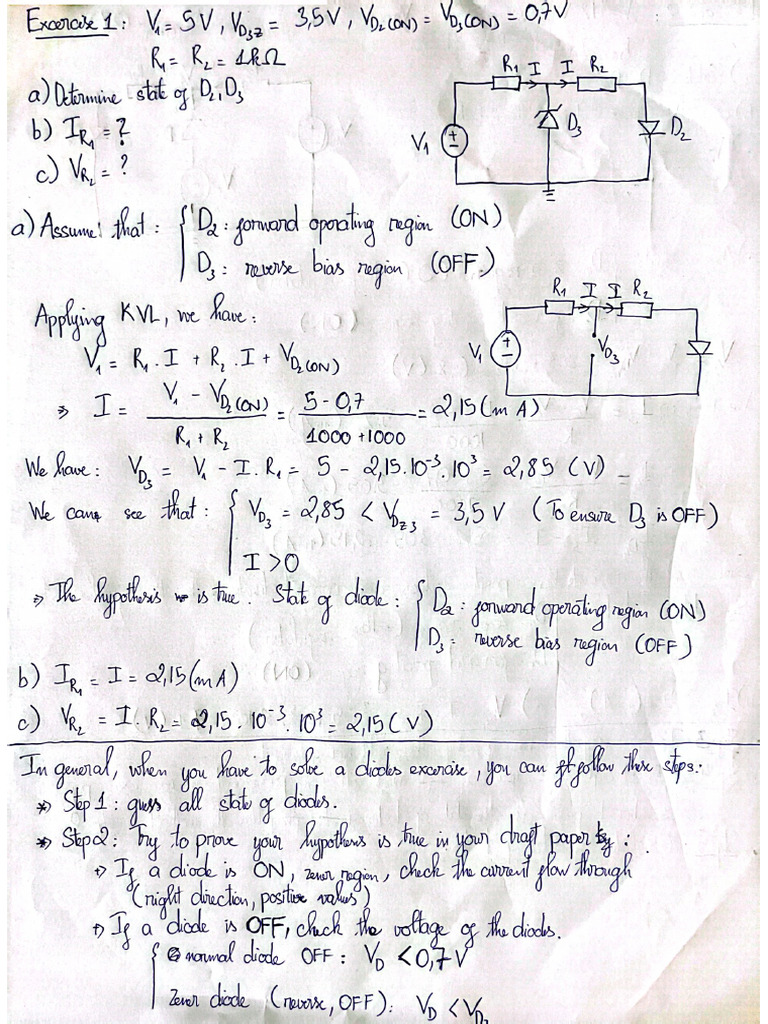 Excercise 1: V₁ = 5V, V_D3Z = 3,5V, V_D2(ON) = V_D3(ON) = 0,7V
R₁ = R₂ = 1kΩ
a) Determine state of D₂, D₃
b) I_R₁ = ?
c) V_R₂ = ?
R₁ I I R₂
V₁ + − D₃ D₂
a) Assume that: { D₂: forward operating region (ON)
D₃: reverse bias region (OFF.)
R₁ I I R₂
V₁ + − V_D3
Applying KVL, we have:
V₁ = R₁. I + R₂. I + V_D2(ON)
⇒ I = (V₁ − V_D2(ON)) / (R₁ + R₂) = (5 − 0,7) / (1000 + 1000) = 2,15 (mA)
We have: V_D3 = V₁ − I. R₁ = 5 − 2,15.10⁻³.10³ = 2,85 (V)
We can see that: { V_D3 = 2,85 < V_DZ3 = 3,5 V (To ensure D₃ is OFF)
I > 0
⇒ The hypothesis is true. State of diode: { D₂: forward operating region (ON)
D₃: reverse bias region (OFF)
b) I_R₁ = I = 2,15 (mA)
c) V_R₂ = I. R₂ = 2,15. 10⁻³. 10³ = 2,15 (V)
In general, when you have to solve a diodes excercise, you can follow these steps:
* Step 1: guess all state of diodes.
* Step 2: Try to prove your hypothesis is true in your draft paper by:
+) If a diode is ON, zener region, check the current flow through
(right direction, positive values)
+) If a diode is OFF, check the voltage of the diodes.
{ normal diode OFF: V_D < 0,7 V
Zener diode (reverse, OFF): V_D < V_DZ